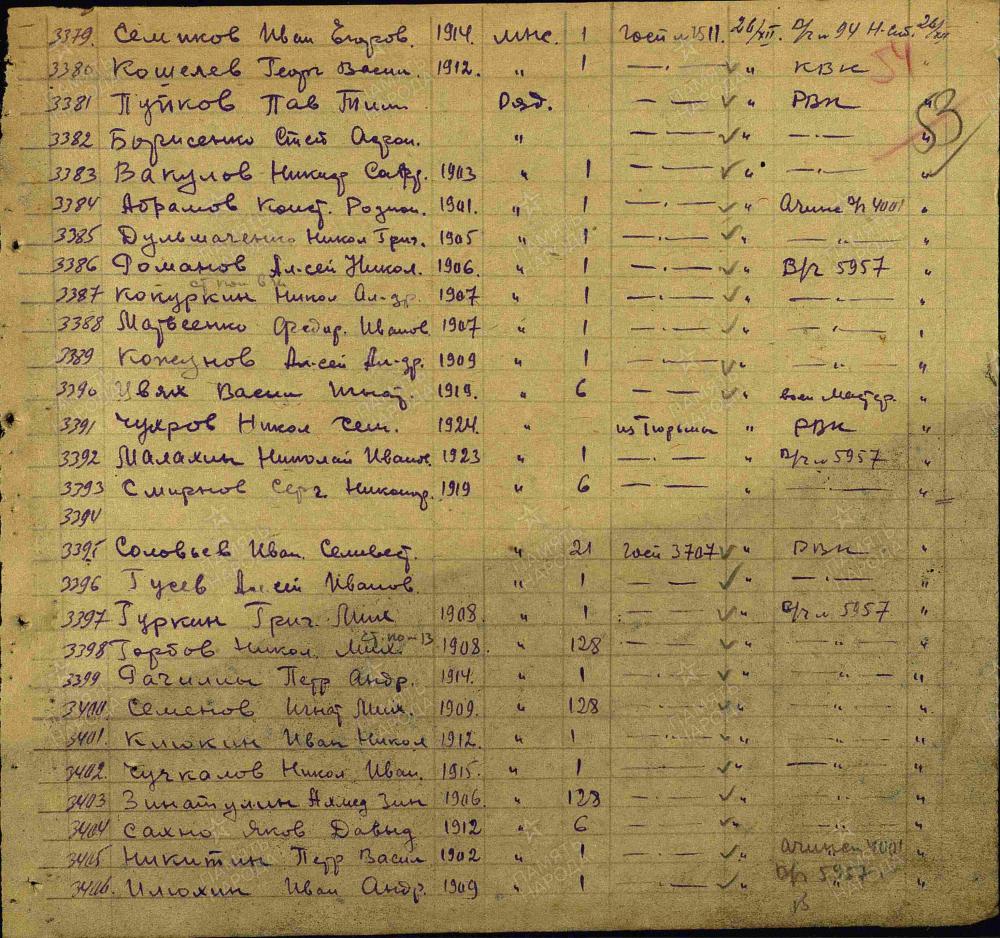 3379. Семиков Иван Егоров. 1914. мнс. 1 Госп № 1511. 26/XII. П/р № 94 Н-сиб. 26/XII
3380 Кошелев Георг Васил. 1912. " 1 — . — " КВК " 54
3381 Пуйков Пав Тим Ряд. — . — " РВК "
3382 Борисенко Степ " — . — " — . — " 53
3383 Вакулов Никандр Сафр. 1903 " 1 — . — " — . — "
3384 Абрамов Конст. Родион. 1901. " 1 — . — " Ачинск П/р 4001 "
3385 Дульмаченко Никол Григ. 1905 " 1 — . — " — " — "
3386 Романов Ал-сей Никол. 1906. " 1 — . — " В/р 5957 "
3387 Кокуркин Никол Ал-др. 1907 " 1 — . — " — . — "
3388 Матвеенко Федор. Иванов 1907 " 1 — . — " — . — "
3389 Кожунов Ал-сей Ал-др. 1909 " 1 — . — " — . — "
3390 Цвях Васил Игнат. 1919. " 6 — — " воен мастер. "
3391 Чухров Никол Сем. 1924. " из Тюрьмы " РВК "
3392 Малахин Николай Иванов. 1923 " 1 — . — " П/р № 5957 "
3393 Смирнов Серг. Никанор. 1919 " 6 — . — " — . — "
3394
3395 Соловьев Иван. Селивест. " 21 Госп 3707 " РВК "
3396 Гусев Ал-сей Иванов. " 1 — — " — . — "
3397 Гуркин Григ. Мих 1908. " 1 — . — " П/р № 5957 "
ст. по-13
3398 Горбов Никол. Мих. 1908. " 128 — . — " — " — "
3399 Петр Андр. 1914. " 1 — . — " — " — "
3400. Семенов Игнат Мих. 1909. " 128 — . — " — " — "
3401. Клюкин Иван Никол 1912. " 1 — . — " — " — "
3402. Чучкалов Никол Иван. 1915. " 1 — . — " — " — "
3403 Зинатулин Ахмед Зин 1906. " 128 — . — " — " — "
3404 Сахно Яков Давыд 1912 " 6 — . — " — " — "
3405 Никитин Петр Васил 1902 " 1 — . — " Ачинск 4001
3406. Илюхин Иван Андр. 1909 " 1 — . — " П/р 5957 "
ПАМЯТЬ НАРОДА